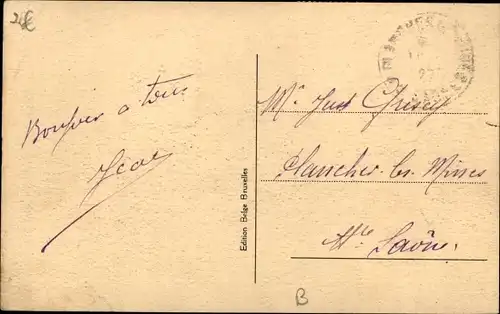 2€
Bonjour à tous
Jean
Edition Belge Bruxelles
Mr Just Grisey
Plancher les Mines
Hte Saône.
B